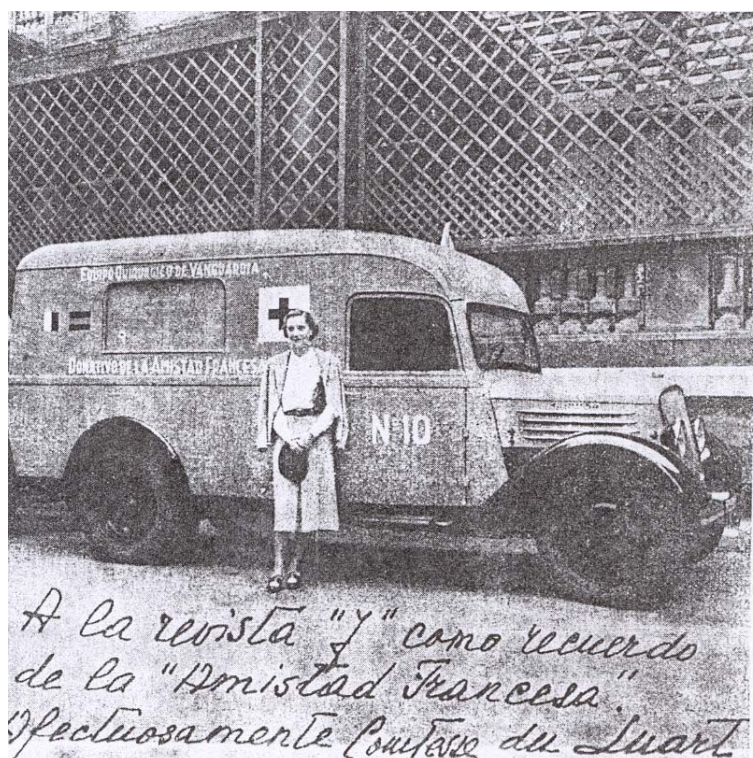 EQUIPO QUIRURGICO DE VANGUARDIA
DONATIVO DE LA AMISTAD FRANCESA
Nº 10
A la revista "Y" como recuerdo
de la "Amistad Francesa".
Afectuosamente Comtesse du Luart